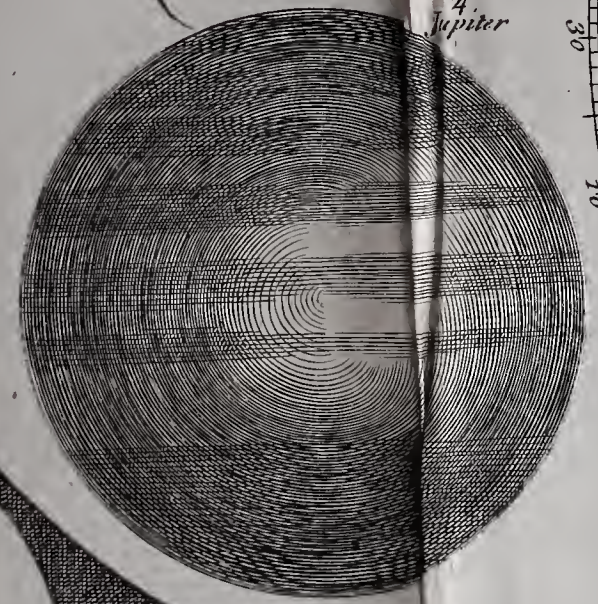 4
Jupiter
30